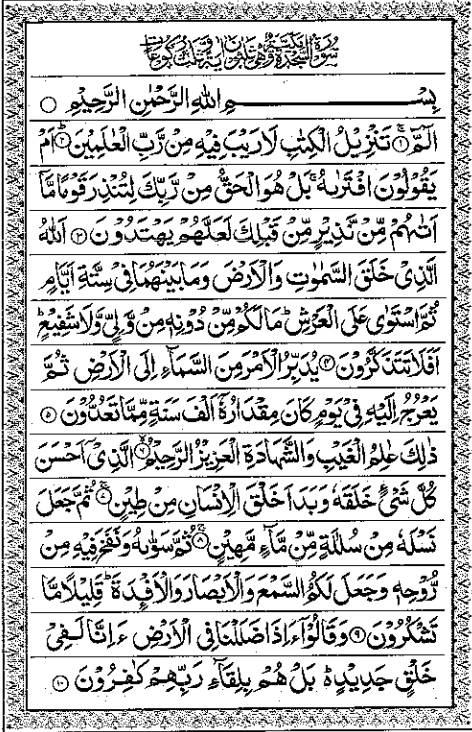 سُوْرَةُ السَّجْدَةِ مَكِّيَّةٌ وَّهِيَ ثَلٰثُوْنَ اٰيَةً وَّثَلٰثُ رُكُوْعَاتٍ
بِسْمِ اللهِ الرَّحْمٰنِ الرَّحِيْمِ ○
الٓمّٓ ۚ﴿۱﴾ تَنْزِيْلُ الْكِتٰبِ لَا رَيْبَ فِيْهِ مِنْ رَّبِّ الْعٰلَمِيْنَ ؕ﴿۲﴾ اَمْ
يَقُوْلُوْنَ افْتَرٰىهُ ۚ بَلْ هُوَ الْحَقُّ مِنْ رَّبِّكَ لِتُنْذِرَ قَوْمًا مَّاۤ
اَتٰىهُمْ مِّنْ نَّذِيْرٍ مِّنْ قَبْلِكَ لَعَلَّهُمْ يَهْتَدُوْنَ ﴿۳﴾ اَللهُ
الَّذِيْ خَلَقَ السَّمٰوٰتِ وَالْاَرْضَ وَمَا بَيْنَهُمَا فِيْ سِتَّةِ اَيَّامٍ
ثُمَّ اسْتَوٰى عَلَى الْعَرْشِ ؕ مَا لَكُمْ مِّنْ دُوْنِهٖ مِنْ وَّلِيٍّ وَّلَا شَفِيْعٍ ؕ
اَفَلَا تَتَذَكَّرُوْنَ ﴿۴﴾ يُدَبِّرُ الْاَمْرَ مِنَ السَّمَآءِ اِلَى الْاَرْضِ ثُمَّ
يَعْرُجُ اِلَيْهِ فِيْ يَوْمٍ كَانَ مِقْدَارُهٗۤ اَلْفَ سَنَةٍ مِّمَّا تَعُدُّوْنَ ﴿۵﴾
ذٰلِكَ عٰلِمُ الْغَيْبِ وَالشَّهَادَةِ الْعَزِيْزُ الرَّحِيْمُ ۙ﴿۶﴾ الَّذِيْۤ اَحْسَنَ
كُلَّ شَيْءٍ خَلَقَهٗ وَبَدَاَ خَلْقَ الْاِنْسَانِ مِنْ طِيْنٍ ۚ﴿۷﴾ ثُمَّ جَعَلَ
نَسْلَهٗ مِنْ سُلٰلَةٍ مِّنْ مَّآءٍ مَّهِيْنٍ ۚ﴿۸﴾ ثُمَّ سَوّٰىهُ وَنَفَخَ فِيْهِ مِنْ
رُّوْحِهٖ وَجَعَلَ لَكُمُ السَّمْعَ وَالْاَبْصَارَ وَالْاَفْـِٕدَةَ ؕ قَلِيْلًا مَّا
تَشْكُرُوْنَ ﴿۹﴾ وَقَالُوْۤا ءَاِذَا ضَلَلْنَا فِى الْاَرْضِ ءَاِنَّا لَفِيْ
خَلْقٍ جَدِيْدٍ ؕ۬ بَلْ هُمْ بِلِقَآءِ رَبِّهِمْ كٰفِرُوْنَ ﴿۱۰﴾